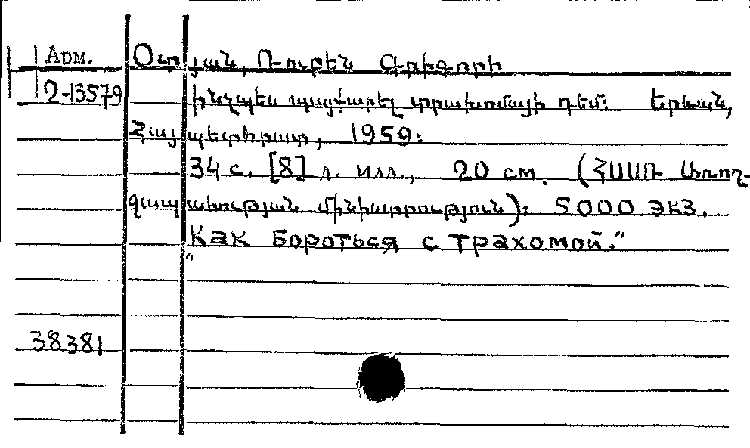 Арм.
2-13579
Օտյան, Ռուբեն Գրիգորի
Ինչպես պայքարել տրախոմայի դեմ: Երևան,
Հայպետհրատ, 1959:
34 с. [8] л. илл., 20 см. (ՀՍՍՌ Առող-
ջապահության մինիստրություն): 5000 экз.
"Как бороться с трахомой."
38381